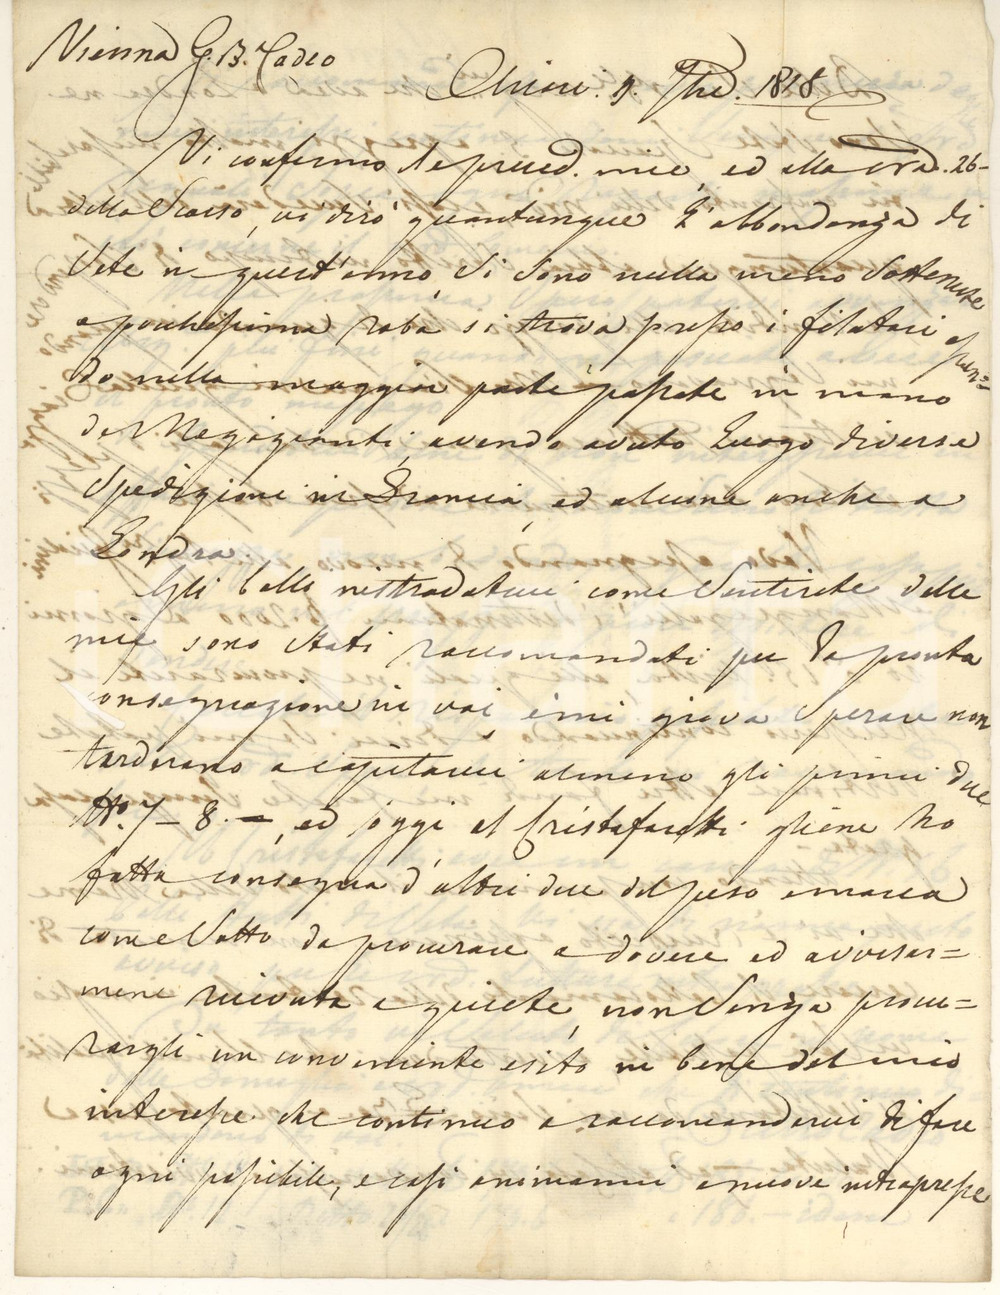 Vienna G. B. Tadeo
Chiari. 9. 7bre. 1818.
Vi confermo le preced. mie, ed alla vra. 26-
dello Scorso, vi dirò quantunque l'abbondanza di
Sete in quest'anno, Si Sono nulla meno Sostenute
e pochissima roba si trova presso i filatori essen=
do nella maggior parte passate in mano
de Negozianti, avendo avuto Luogo diverse
Spedizioni in Francia, ed alcune anche a
Londra.
Gli balle come Sentirete dalle
mie sono stati raccomandati per la pronta
consegnazione in voi, e mi giova Sperare non
tarderano a capitarvi almeno gli primi due
No. 7-8.-, ed oggi al Cristofoletti gliene ho
fatta consegna d'altri due del peso e marca
come Sotto da procurare a dovere ed avvisar=
mene ricevuta e quiete, non Senza procu=
rargli un conveniente esito in bene del mio
interesse che continuo a raccomandarvi di fare
ogni possibile, e così animarmi a nuove intraprese